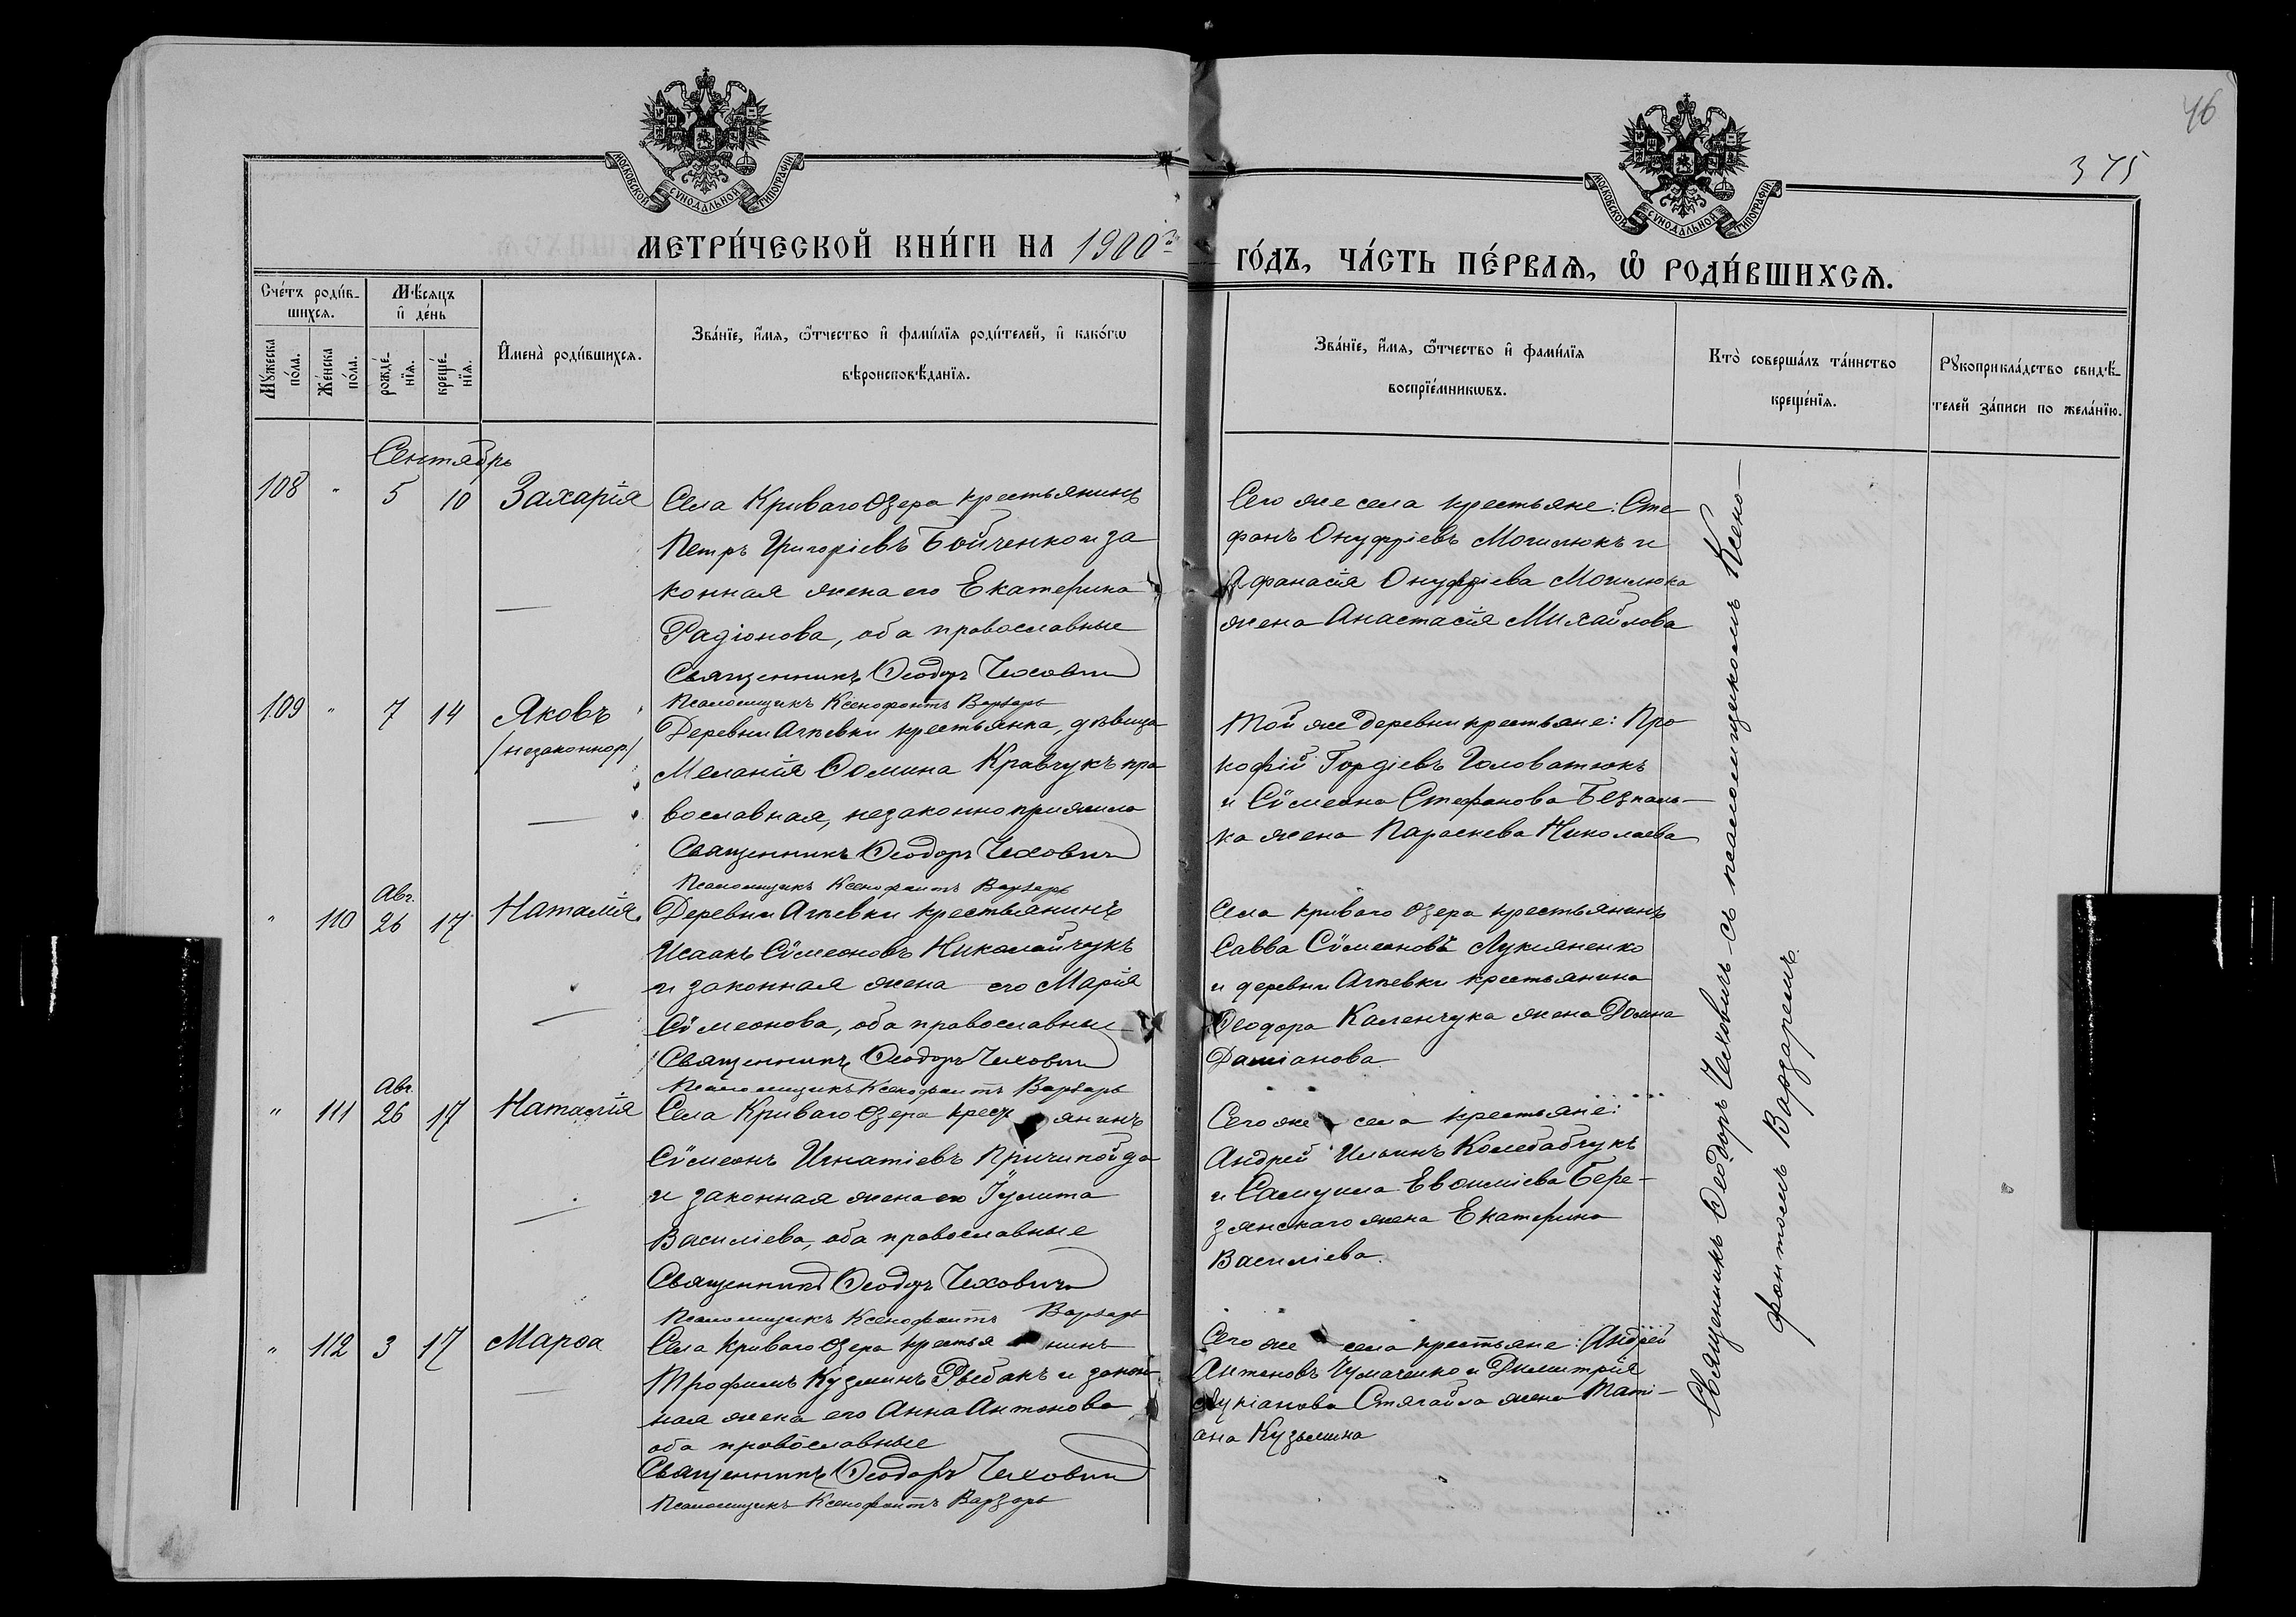 46
375
МОСКОВСКОЙ СУНОДАЛЬНОЙ ТИПОГРАФІИ
МОСКОВСКОЙ СУНОДАЛЬНОЙ ТИПОГРАФІИ
МЕТРИ́ЧЕСКОЙ КНИ́ГИ НА 1900й
ГО́ДЪ, ЧА́СТЬ ПЕ́РВАѦ, Ѡ РОДИ́ВШИХСѦ.
Сче́тъ роди́в-
шихсѧ.
Мꙋ́жеска по́ла.
Же́нска по́ла.
Мѣ́сяцъ и де́нь
рожде́-нїѧ.
креще́-нїѧ.
И҆мена̀ роди́вшихсѧ.
Зва́нїе, и҆́мѧ, ѻ҆́тчество и҆ фами́лїѧ роди́телей, и҆ како́гѡ
вѣроисповѣ́данїѧ.
Зва́нїе, и҆́мѧ, ѻ҆́тчество и҆ фами́лїѧ
воспрїе́мникѡвъ.
Кто̀ соверша́лъ та́инство
креще́нїѧ.
Рꙋкоприкла́дство свидѣ́-
телей за́писи по жела́нїю.
Сентябрь
108 " 5 10 Захарія
Села Криваго Озера крестьянинъ
Петръ Григоріевъ Бойченко и за
конная жена его Екатерина
Радіонова, оба православные
Священникъ Ѳеодоръ Чеховичъ
Псаломщикъ Ксенофонтъ Варзарь
Сего же села крестьяне: Сте-
фанъ Онуфріевъ Могилюкъ и
Афанасія Онуфріева Могилюка
жена Анастасія Михайлова
109 " 7 14 Яковъ
/незаконнор./
Деревни Агѣевки крестьянка, дѣвица
Меланія Ѳомина Кравчукъ пра
вославная, незаконно прижила
Священникъ Ѳеодоръ Чеховичъ
Псаломщикъ Ксенофонтъ Варзарь
Той же деревни крестьяне: Про
кофій Гордіевъ Головатюкъ
и Сѵмеона Стефанова Безпаль-
ка жена Параскева Николаева
Авг.
" 110 26 17 Наталія
Деревни Агѣевки крестьянинъ
Исаакъ Сѵмеоновъ Николайчукъ
и законная жена его Марія
Сѵмеонова, оба православные
Священникъ Ѳеодоръ Чеховичъ
Псаломщикъ Ксенофонтъ Варзарь
Села Криваго Озера крестьянинъ
Савва Сѵмеоновъ Лукяненко
и деревни Агѣевки крестьянина
Ѳеодора Каленчука жена Домна
Даміанова
Авг.
" 111 26 17 Наталія
Села Криваго Озера крест янинъ
Сѵмеонъ Игнатіевъ Причипойда
и законная жена его Іулита
Василіева, оба православные
Священникъ Ѳеодоръ Чеховичъ
Псаломщикъ Ксенофонтъ Варзарь
Сего же села крестьяне:
Андрей Ильинъ Колебабчукъ
и Самуила Евѳиміева Бере-
зянскаго жена Екатерина
Василіева.
" 112 3 17 Марѳа
Села Криваго Озера крестья нинъ
Трофимъ Кузминъ Рыбакъ и закон
ная жена его Анна Антонова
оба православные
Священникъ Ѳеодоръ Чеховичъ
Псаломщикъ Ксенофонтъ Варзарь
Сего же села крестьяне: Андрей
Антоновъ Чумаченко и Димитрія
Лукіанова Стягайла жена Таті-
ана Кузьмина
Священникъ Ѳеодоръ Чеховичъ съ псаломщикомъ Ксено-
фонтомъ Варзаремъ.